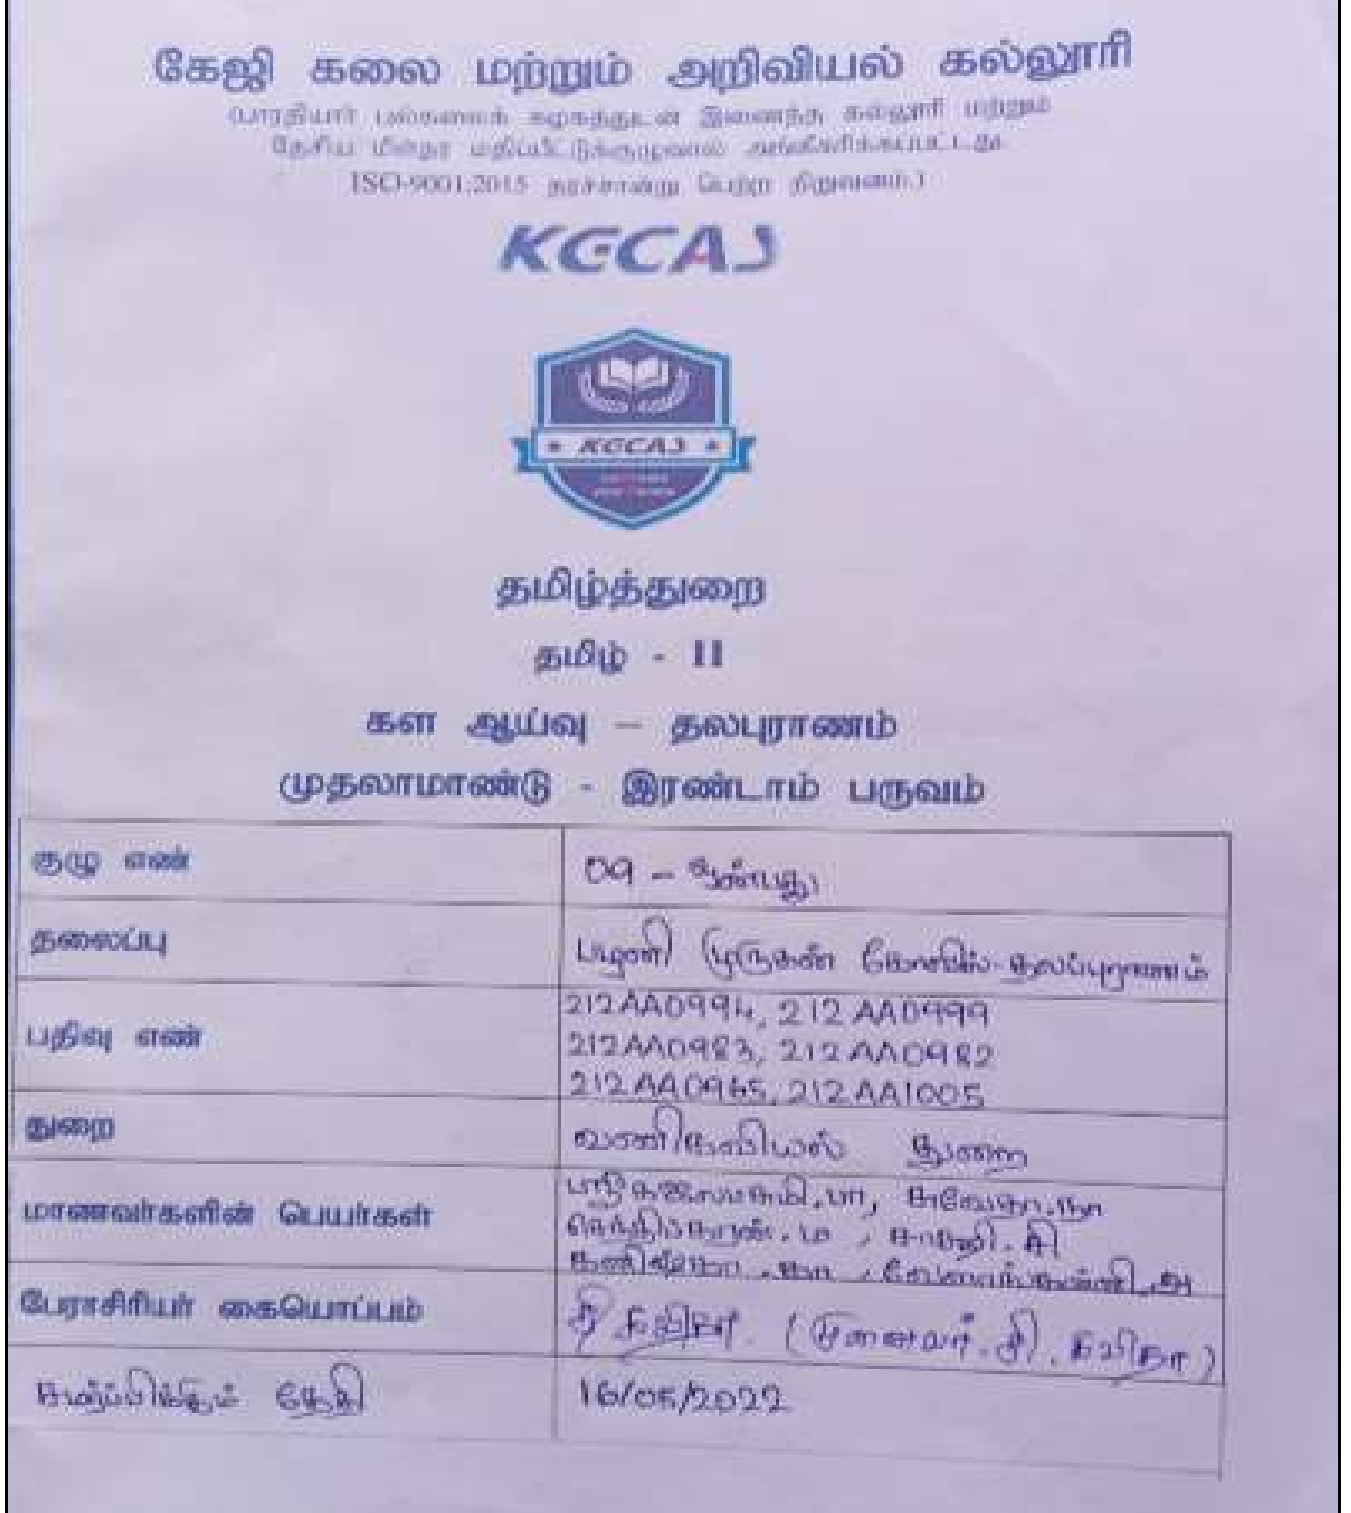 கேஜி கலை மற்றும் அறிவியல் கல்லூரி
(பாரதியார் பல்கலைக் கழகத்துடன் இணைந்த கல்லூரி மற்றும்
தேசிய மதிப்பீட்டுக்குழுவால் அங்கீகரிக்கப்பட்டது
ISO-9001:2015 தரச்சான்று பெற்ற நிறுவனம்)
KGCAS
KGCAS
தமிழ்த்துறை
தமிழ் - II
கள ஆய்வு – தலபுராணம்
முதலாமாண்டு - இரண்டாம் பருவம்
குழு எண் 09 – ஒன்பது
தலைப்பு பழனி முருகன் கோவில் தலப்புராணம்
பதிவு எண் 212AA0994, 212AA0999
212AA0983, 212AA0982
212AA0965, 212AA1005
துறை வணிகவியல் துறை
மாணவர்களின் பெயர்கள்
பேராசிரியர் கையொப்பம் (முனைவர். சி. கவிதா)
சமர்ப்பிக்கும் தேதி 16/05/2022